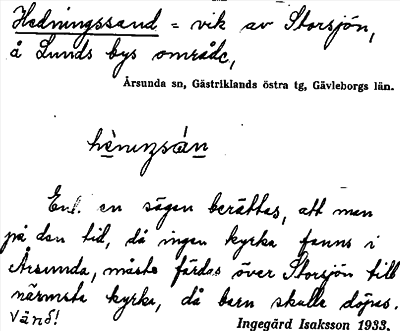 Hedningssand = vik av Storsjön,
å Lunds bys område,
Årsunda sn, Gästriklands östra tg, Gävleborgs län.
hèninsán
Enl. en sägen berättas, att man
på den tid, då ingen kyrka fanns i
Årsunda, måste färdas över Storsjön till
närmsta kyrka, då barn skulle döpas.
Vänd!
Ingegärd Isaksson 1933.